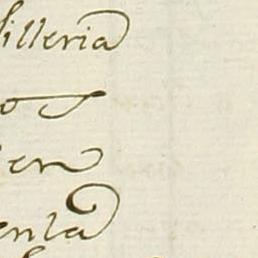 illeria
os
en
enta